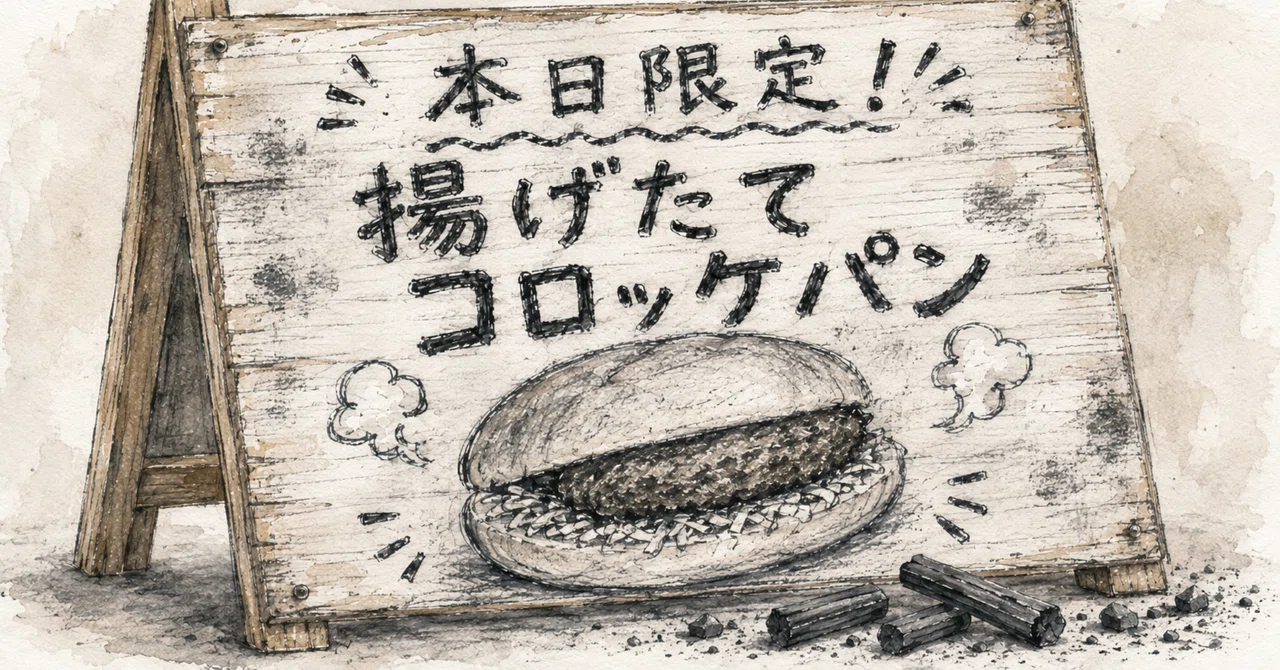 本日限定！
揚げたて
コロッケパン